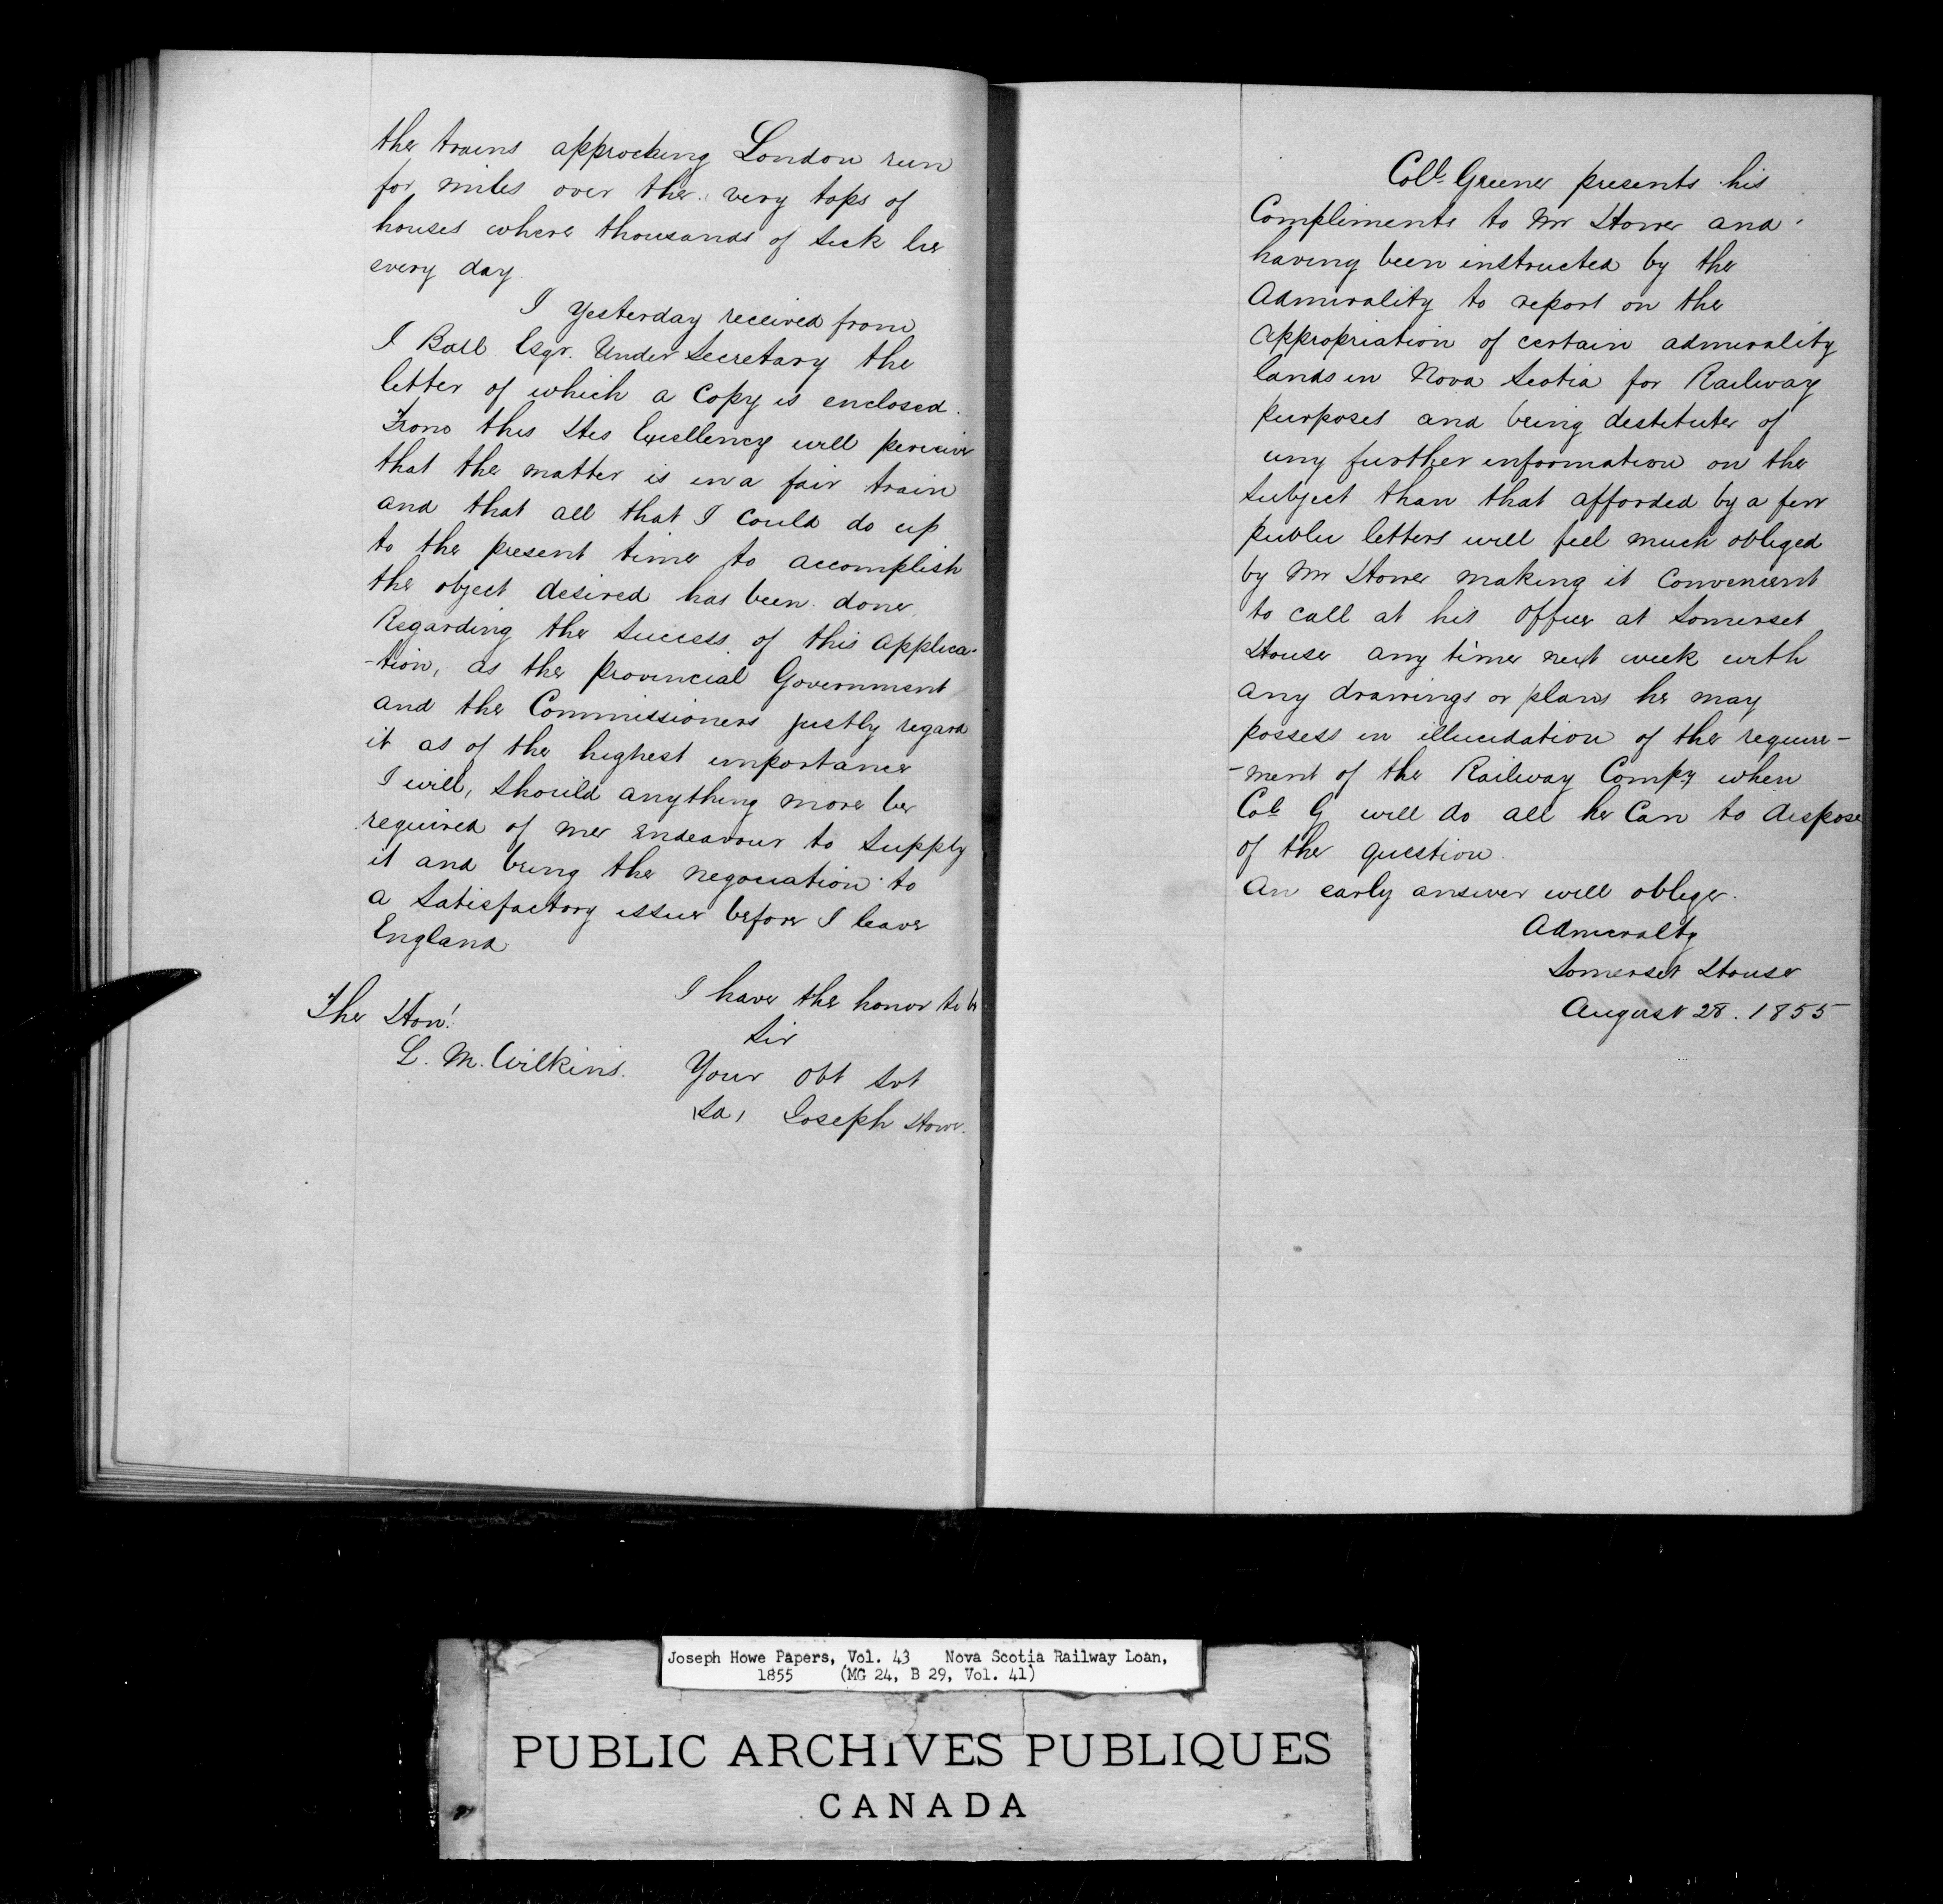 the trains approching London run
for miles over the very tops of
houses where thousands of sick lie
every day.
I yesterday received from
J Ball Esqr. Under Secretary the
letter of which a Copy is enclosed.
From this His Excellency will perceive
that the matter is in a fair train
and that all that I could do up
to the present time to accomplish
the object desired has been done
Regarding the success of this applica-
-tion, as the provincial Government
and the Commissioners justly regard
it as of the highest importance
I will, should anything more be
required of me endeavour to supply
it and bring the negociation to
a satisfactory issue before I leave
England
I have the honor to be
Sir
Your Obt Svt
Joseph Howe.
The Hon!
L. M. Wilkins.
Coll. Greene presents his
Compliments to Mr Howe and
having been instructed by the
Admirality to report on the
appropriation of certain admirality
lands in Nova Scotia for Railway
purposes and being destitute of
any further information on the
subject than that afforded by a few
public letters will feel much obliged
by Mr Howe making it convenient
to call at his Office at Somerset
House any time next week with
any drawings or plans he may
possess in illucidation of the require-
-ment of the Railway Compy when
Col. G will do all he Can to dispose
of the question.
An early answer will oblige.
Admiralty
Somerset House
August 28. 1855
Joseph Howe Papers, Vol. 43 Nova Scotia Railway Loan,
1855 (MG 24, B 29, Vol. 41)
PUBLIC ARCHIVES PUBLIQUES
CANADA